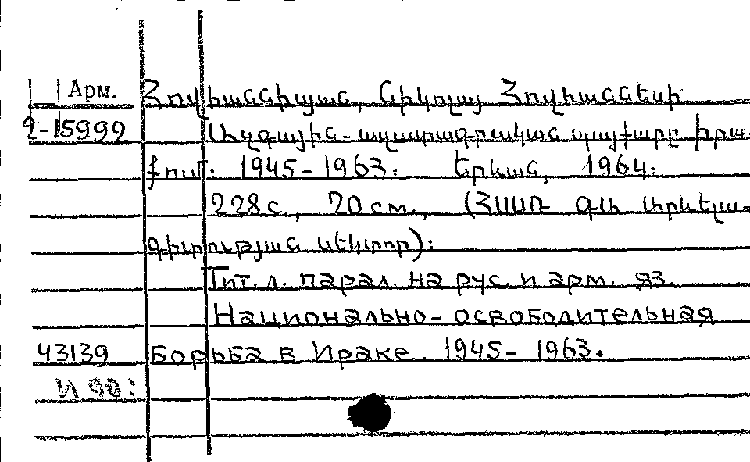 Арм.
Հովհաննիսյան, Նիկոլայ Հովհաննեսի
2-15999
Ազգային-ազատագրական պայքարը Իրա-
քում: 1945-1963: Երևան, 1964:
228 с., 20 см., (ՀՍՍՌ ԳԱ արևելա-
գիտության սեկտոր):
Тит. л. парал. на рус. и арм. яз.
Национально-освободительная
43139 борьба в Ираке. 1945-1963.